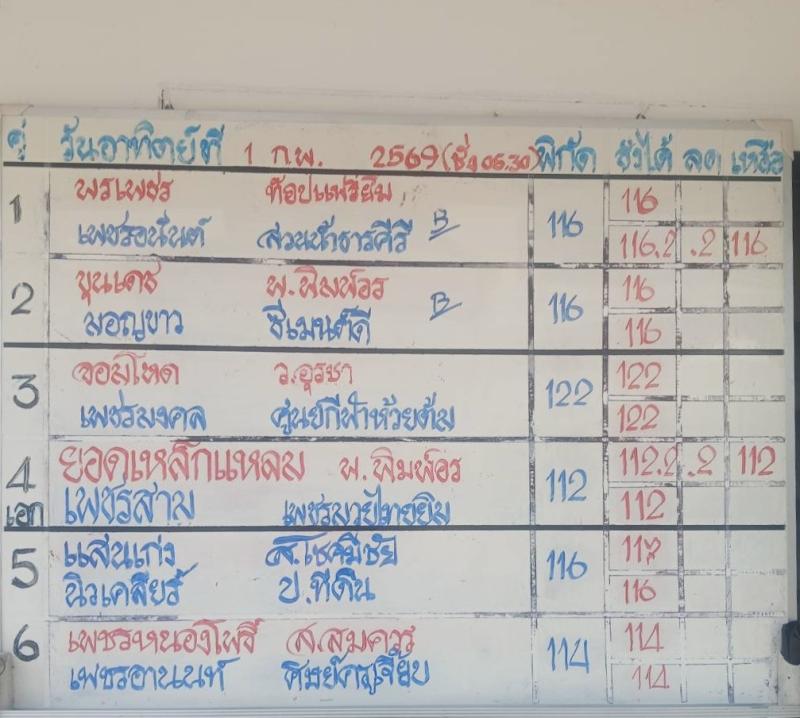 คู่ วันอาทิตย์ที่ 1 ก.พ. 2569 (ชั่ง 05.30) พิกัด ชั่งได้ ลด เหลือ
1 พรเพชร ท๊อปแฟรี่ยิม 116 116
เพชรอนันต์ สวนน้ำธารคีรี B 116.2 .2 116
2 ขุนเดช พ.พิมพ์อร 116 116
มอญขาว ซีเมนต์ดี B 116
3 จอมโหด ว.อุรชา 122 122
เพชรมงคล ศูนย์กีฬาห้วยต้ม 122
4 ยอดเหล็กแหลม พ.พิมพ์อร 112 112.2 .2 112
เอก เพชรสาม 112
5 แสนเก่ง ส.โชคมีชัย 116
นิวเคลียร์ ป.ทีดิน 116
6 เพชรหนองโพธิ์ ส.สมควร 114 114
เพชรอานนท์ ศิษย์ครูเจี๊ยบ 114